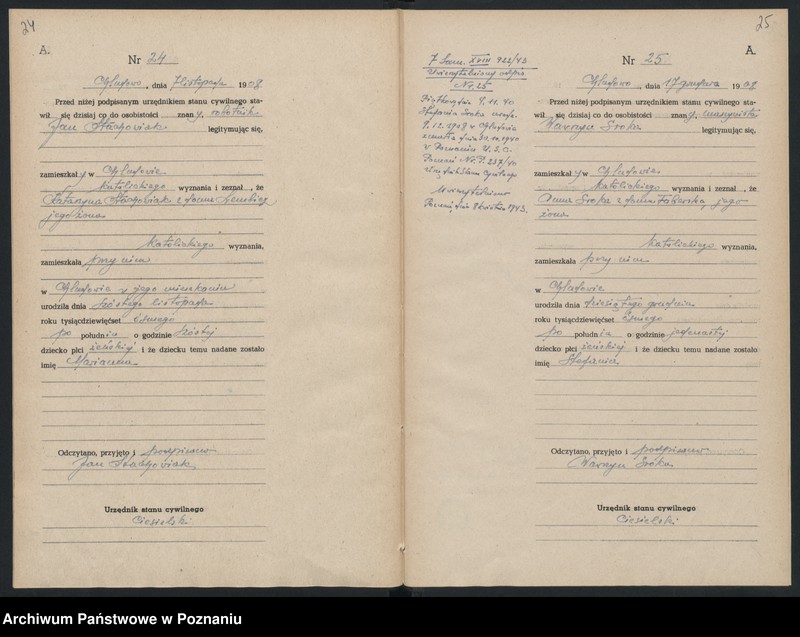 24
A.
Nr 24
, dnia 7 listopada 1908
Przed niżej podpisanym urzędnikiem stanu cywilnego sta-
wił się dzisiaj co do osobistości znany, robotnik
Jan legitymując się,
zamieszkały w
katolickiego wyznania i zeznał, że
Katarzyna z domu
jego żona
katolickiego wyznania,
zamieszkała przy nim
w w jego mieszkaniu
urodziła dnia szóstego listopada
roku tysiącdziewięćset ósmego
po południu o godzinie szóstej
dziecko płci żeńskiej i że dziecku temu nadane zostało
imię Marianna
Odczytano, przyjęto i podpisano
Jan
Urzędnik stanu cywilnego
Ciesielski
25
A.
7 XVIII 922/43
Uwierzytelniony odpis
Nr. 25
9.11.40
Stefania Sroka urodz.
9.12.1908 w
zmarła dnia 30.10.1940
w Poznaniu U.S.C.
Poznań Nr.
Uwierzytelniono
Poznań, dnia 8 kwietnia 1943.
Nr 25
, dnia 17 grudnia 1908
Przed niżej podpisanym urzędnikiem stanu cywilnego sta-
wił się dzisiaj co do osobistości znany,
Wawrzyn Sroka legitymując się,
zamieszkały w
katolickiego wyznania i zeznał, że
Anna Sroka z domu jego
żona
katolickiego wyznania,
zamieszkała przy nim
w
urodziła dnia dziesiątego grudnia
roku tysiącdziewięćset ósmego
po południu o godzinie jedenastej
dziecko płci żeńskiej i że dziecku temu nadane zostało
imię Stefania
Odczytano, przyjęto i podpisano
Wawrzyn Sroka
Urzędnik stanu cywilnego
Ciesielski
Archiwum Państwowe w Poznaniu